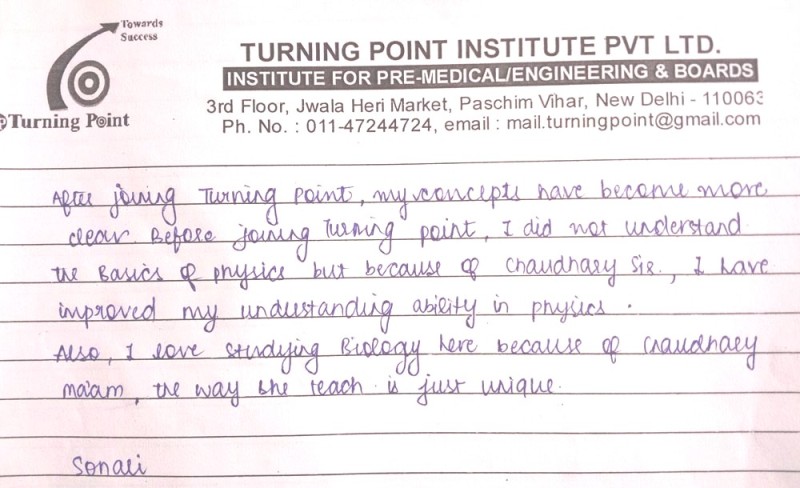 Towards
Success
Turning Point
TURNING POINT INSTITUTE PVT LTD.
INSTITUTE FOR PRE-MEDICAL/ENGINEERING & BOARDS
3rd Floor, Jwala Heri Market, Paschim Vihar, New Delhi - 110063
Ph. No. : 011-47244724, email : mail.turningpoint@gmail.com
After joining Turning point, my concepts have become more
clear. Before joining Turning point, I did not understand
the Basics of physics but because of Chaudhary Sir., I have
improved my understanding ability in physics.
Also, I love studying Biology here because of Chaudhary
ma'am, the way she teach is just unique.
Sonali